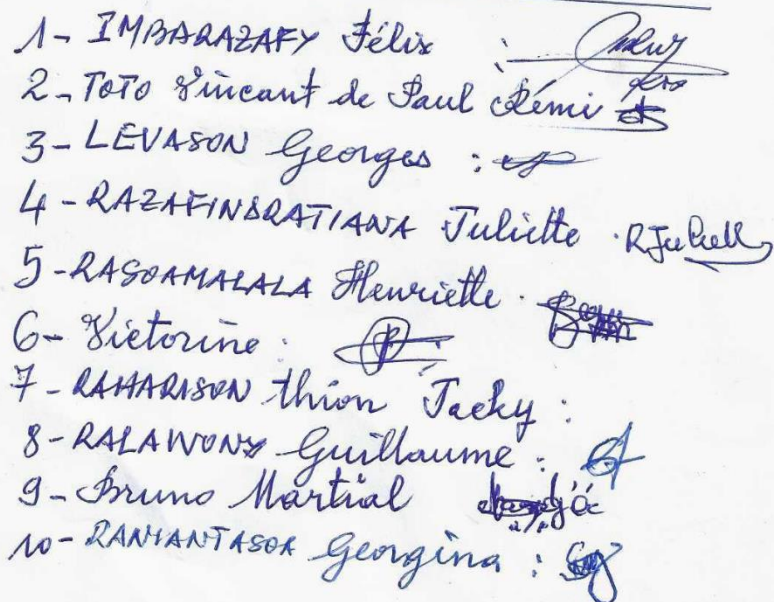 1- IMBARAZAFY Félix :
2- TOTO Vincant de Paul Rémi
3- LEVASON Georges :
4- RAZAFINDRATIANA Juliette . RJuliell
5- RASOAMALALA Henriette .
6- Victorine :
7- RAHARISON thion Jacky :
8- RALAWONY Guillaume :
9- Bruno Martial
10- RANIANTASOA Georgina :